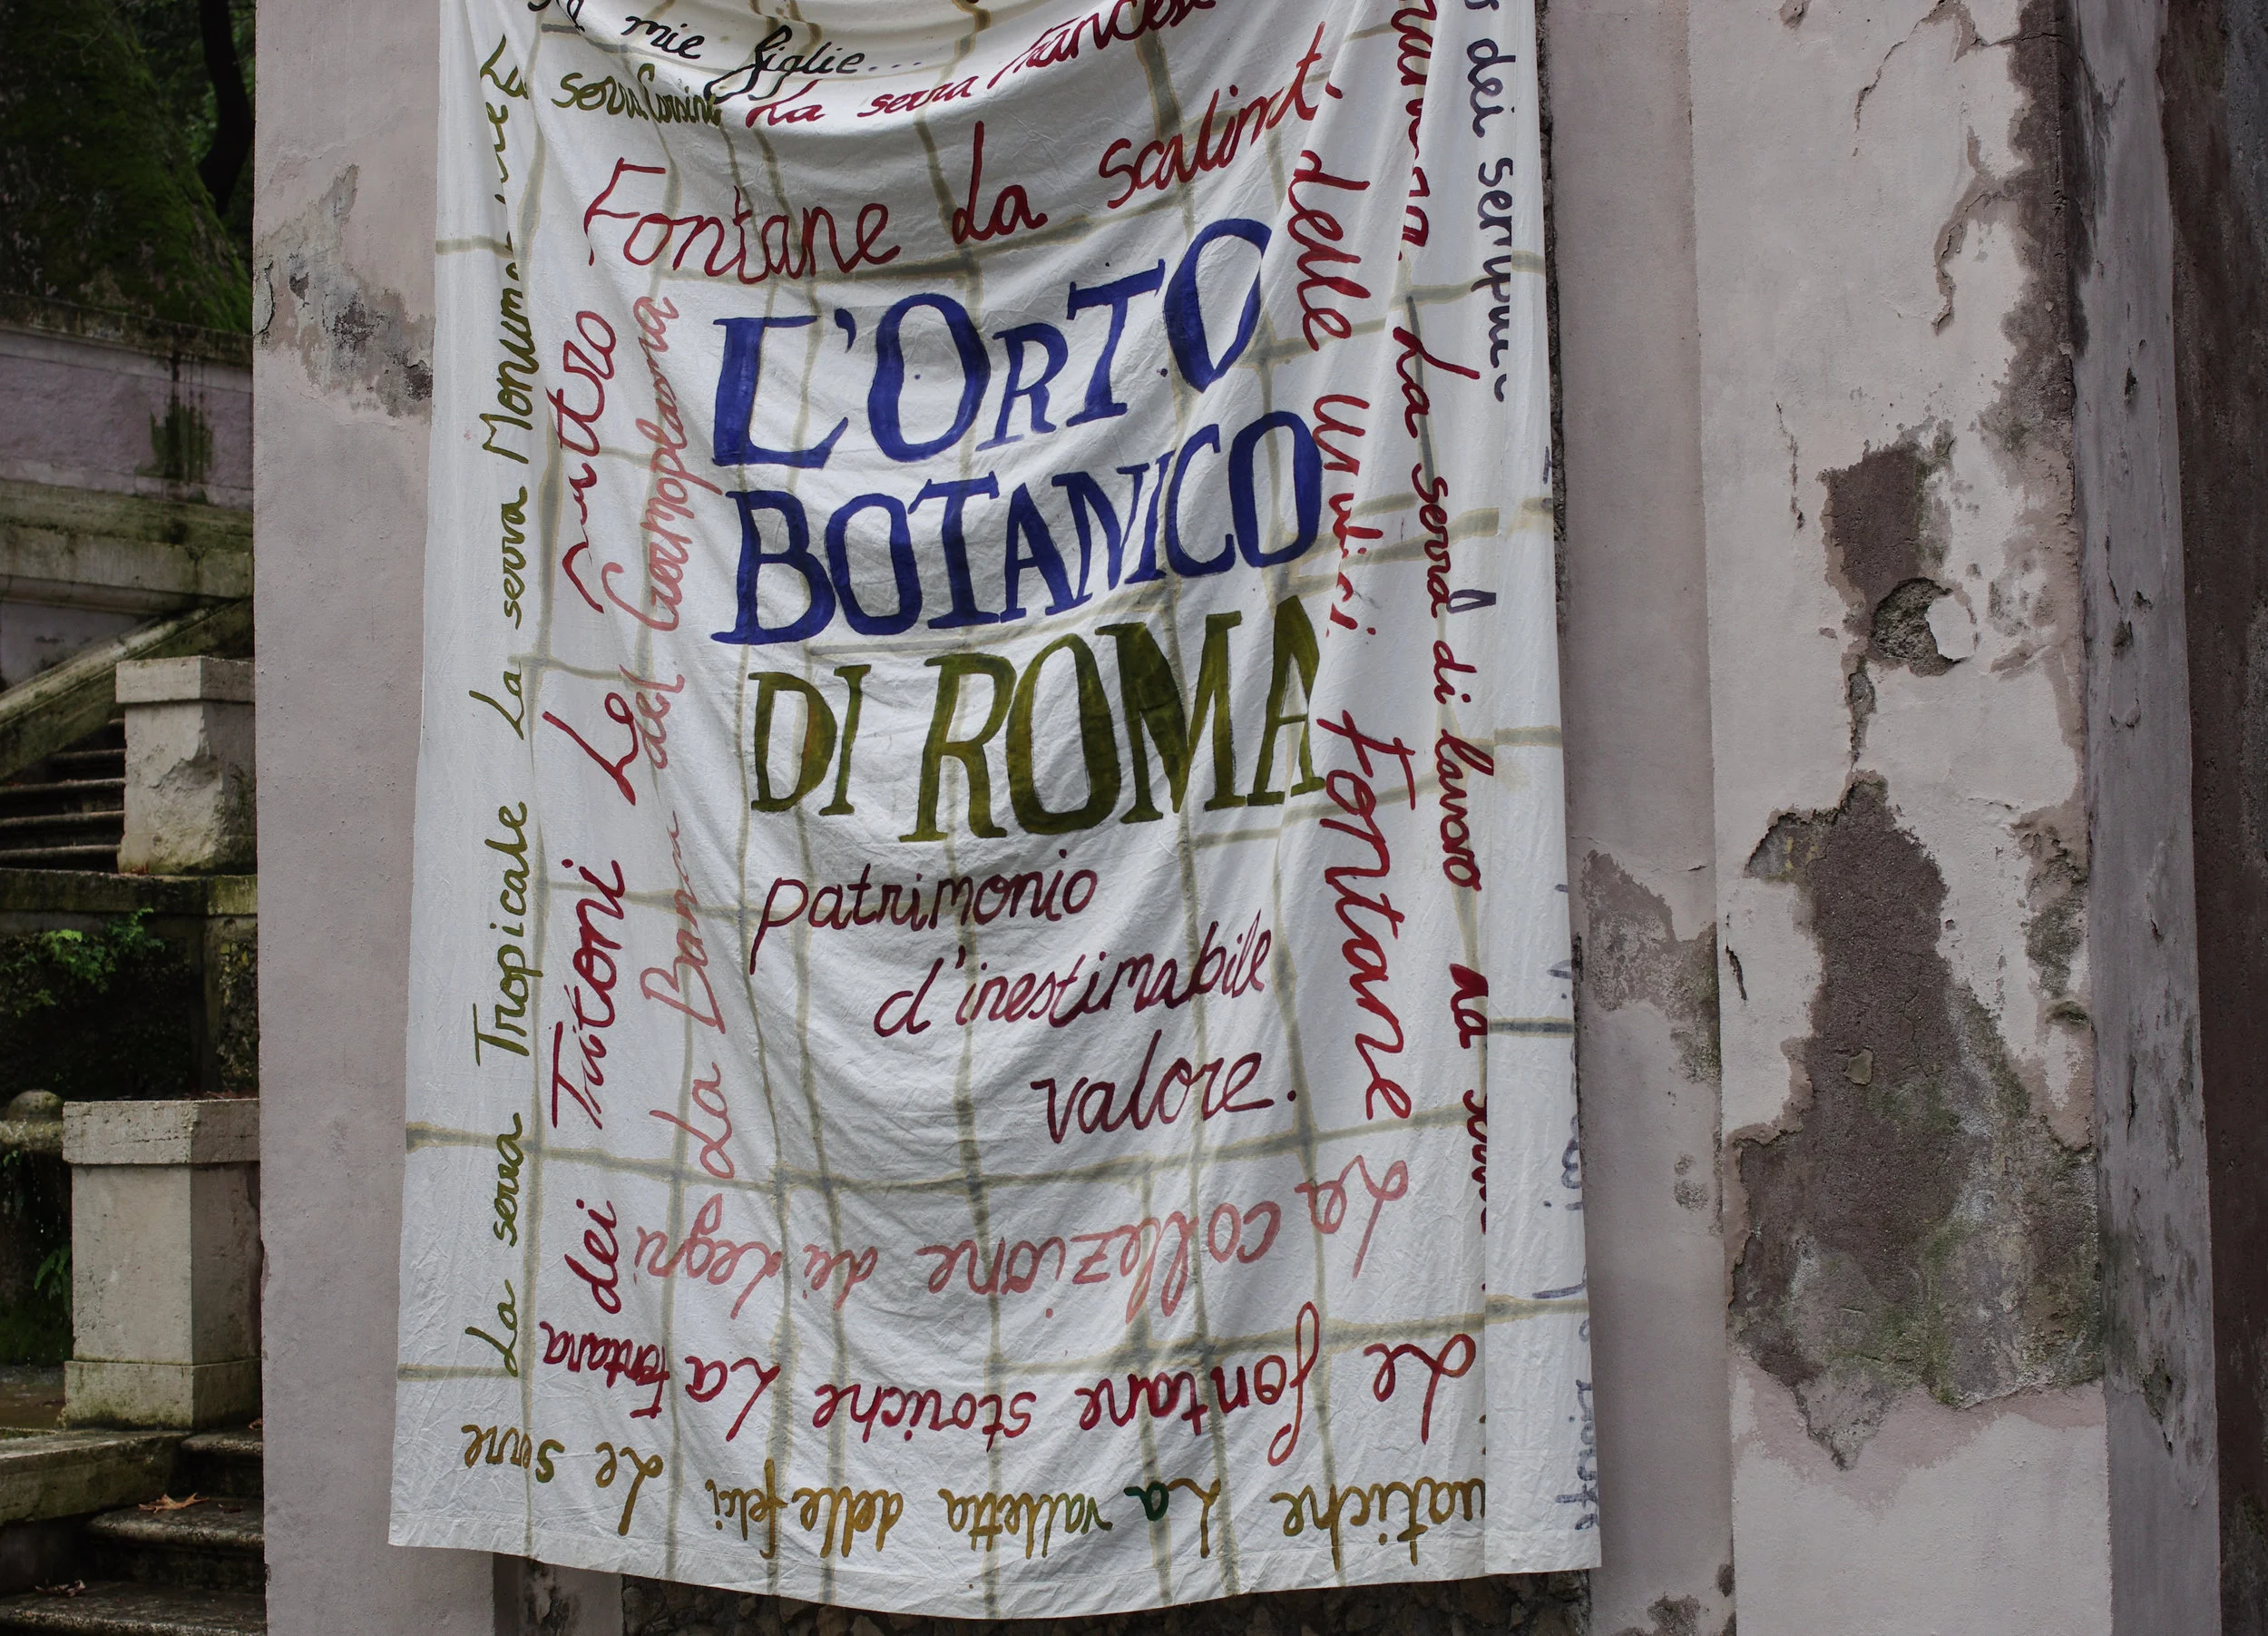 mie figlie...
serra Corsini La serra francese
Fontane La scalinat.
delle
Fontane
L'ORTO
BOTANICO
DI ROMA
patrimonio
d'inestimabile
valore.
La serra Tropicale La serra
dei Tritoni Le
La del Germoplasma
La serra di lavoro La
dei
La collezione dei legni
Le fontane storiche La fontana
La valletta delle felci Le serre